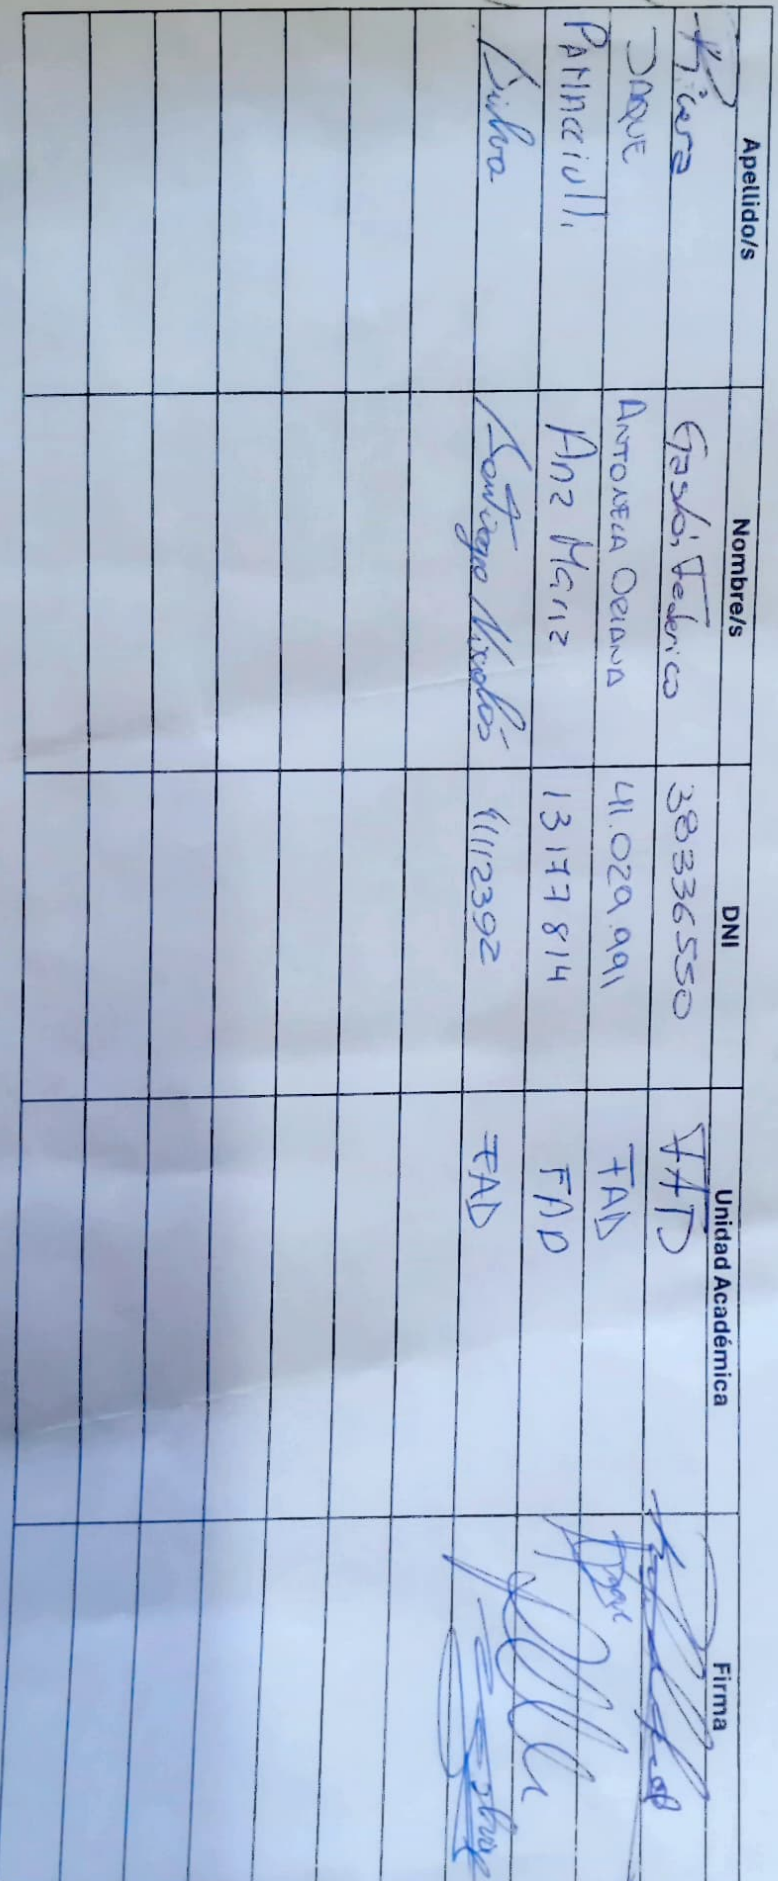 Apellido/s Nombre/s DNI Unidad Académica Firma
Rivera Gastón Federico 38336550 FAD
JAQUE ANTONELA ORIANA 41.029.991 FAD
Ana Maria 13177814 FAD
Silva Santiago Nicolás 41112392 FAD